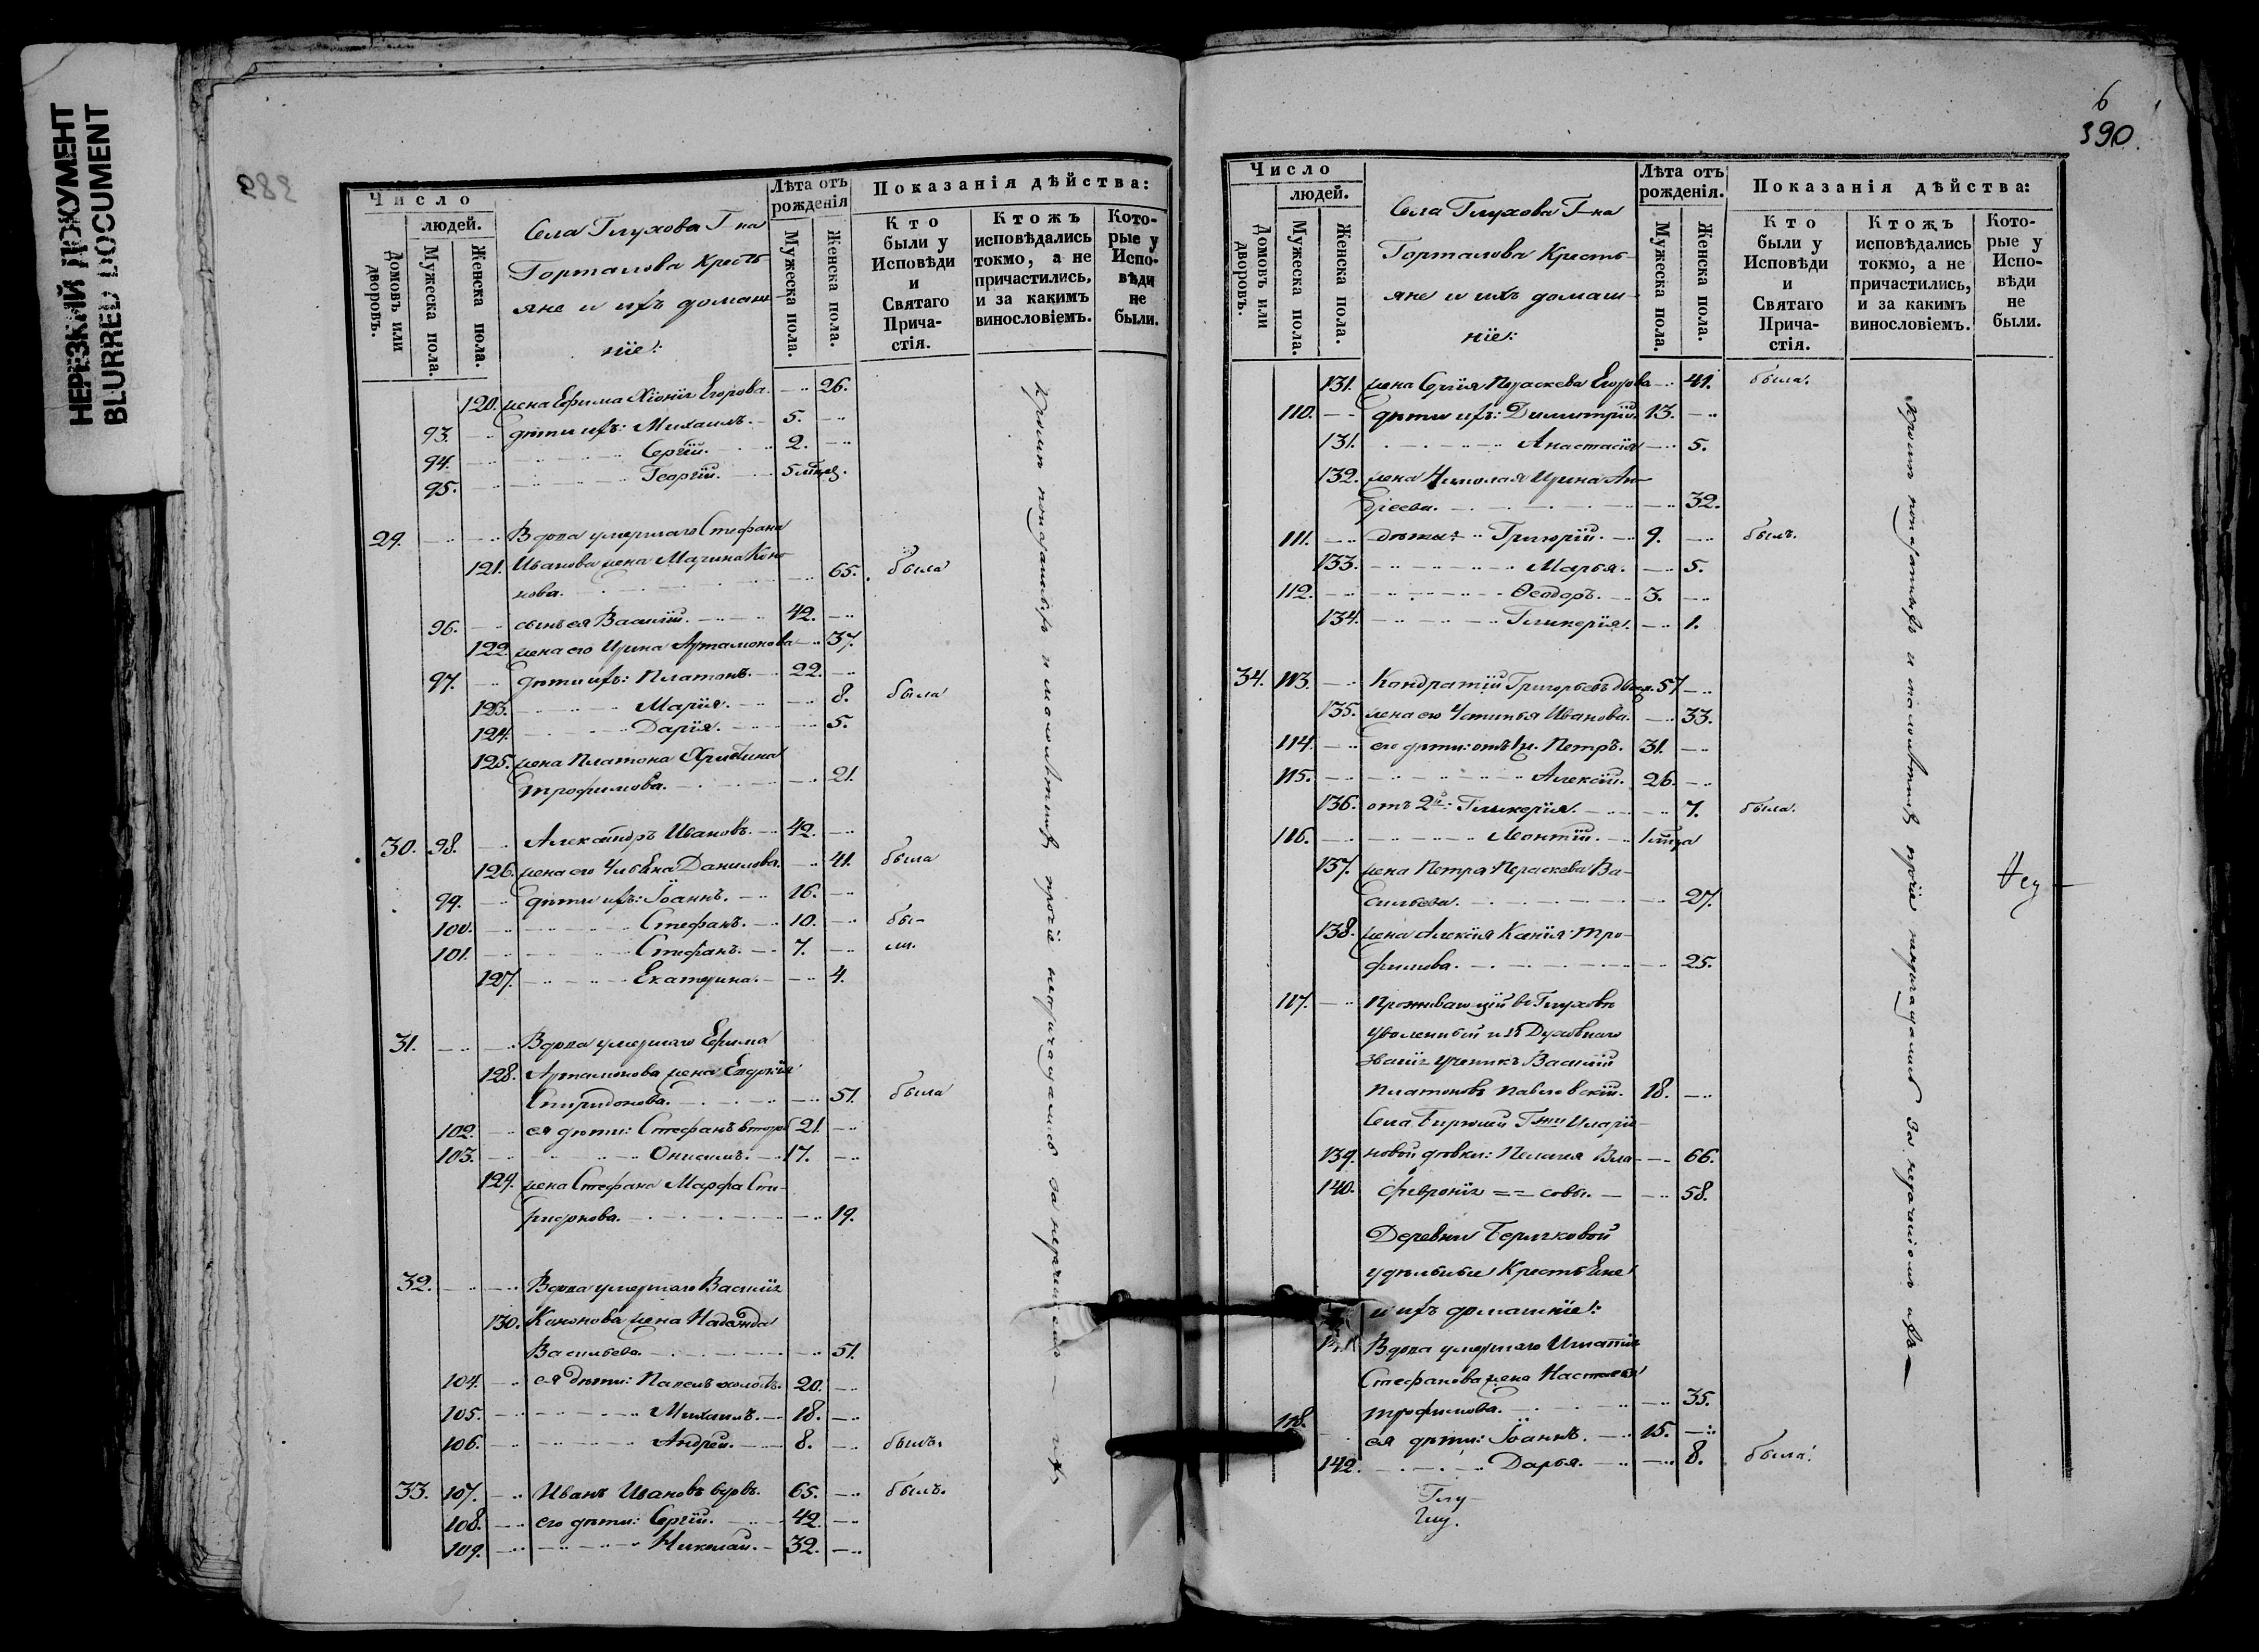 НЕРЕЗКИЙ ДОКУМЕНТ
BLURRED DOCUMENT
Число
людей.
Домовъ или дворовъ.
Мужеска пола.
Женска пола.
Села Глухова Г-на
Горталова Кресть
яне и ихъ домаш-
ніе:
Лѣта отъ рожденія
Мужеска пола.
Женска пола.
Показанія дѣйства:
Кто были у Исповѣди и Святаго Прича-стія.
Ктожъ исповѣдались токмо, а не причастились, и за какимъ винословіемъ.
Кото-рые у Испо-вѣди не были.
120. жена Ефима Хіонія Егорова. 26.
93. дѣти ихъ: Михаилъ. 5.
94. Сергій. 2.
95. Георгій. 5
29. Вдова умершаго Стефана
121. Иванова жена Марина Коно
нова. 65. была
96. сынъ ея Василій. 42.
122. жена его Ирина Артамонова 37.
97. дѣти ихъ: Платонъ. 22.
123. Марія. 8. была
124. Дарія. 5.
125. жена Платона Христина
Трофимова. 21.
30. 98. Александръ Ивановъ. 42.
126. жена его Данилова. 41. была
99. дѣти ихъ: Іоаннъ. 16.
100. Стефанъ. 10. бы-
101. Стефанъ. 7. ли.
127. Екатерина. 4.
31. Вдова умершаго Ефима
128. Артамонова жена
Спиридонова. 51. была
102. ея дѣти: Стефанъ 21.
103. Онисимъ. 17.
129. жена Стефана Марфа Спи-
ридонова. 19.
32. Вдова умершаго Василія
130. Кононова жена Надежда
Васильева. 51.
104. ея дѣти: Павелъ холостъ. 20.
105. Михаилъ. 18.
106. Андрей. 8. былъ.
33. 107. Иванъ Ивановъ вдовъ. 65. былъ.
108. его дѣти: Сергій. 42.
109. Николай. 32.
Кромѣ показанныхъ и малолѣтнихъ прочіе не причащались за нерачѣніемъ ихъ
6
390.
Число
людей.
Домовъ или дворовъ.
Мужеска пола.
Женска пола.
Села Глухова Г-на
Горталова Кресть-
яне и ихъ домаш-
ніе:
Лѣта отъ рожденія.
Мужеска пола.
Женска пола.
Показанія дѣйства:
Кто были у Исповѣди и Святаго Прича-стія.
Ктожъ исповѣдались токмо, а не причастились, и за какимъ винословіемъ.
Кото-рые у Испо-вѣди не были.
131. жена Сергія Параскева Егорова 41. была.
110. дѣти ихъ: Димитрій. 13.
131. Анастасія 5.
132. жена Николая Ирина Ан-
дреева. 32.
111. дѣти: Григорій. 9. былъ.
133. Марья. 5.
112. Ѳеодоръ. 3.
134. Гликерія. 1.
34. 113. Кондратій Григорьевъ 57
135. жена его Устинья Иванова. 33.
114. его дѣти: отъ 1й. Петръ. 31.
115. Алексій. 26.
136. отъ 2й: Гликерія. 7. была.
116. Леонтій. 1
137. жена Петра Параскева Ва-
сильева. 27.
138. жена Алексія Ксенія Тро-
фимова. 25.
117. Проживающій въ Глуховѣ
уволенный изъ Духовнаго
званія ученикъ Василій
Платоновъ Павловскій. 18.
Села
139. новой дѣвки: Пелагея Вла- 66.
140. Февронія == совы. 58.
Деревни Беричковой
удѣльные Крестьяне
и ихъ домашніе:
141 Вдова умершаго Игнатія
Стефанова жена Настасья
Трофимова. 35.
118. ея дѣти: Іоаннъ. 15.
142. Дарья. 8. была.
Кромѣ показанныхъ и малолѣтнихъ прочіе не причащались за нерачѣніемъ ихъ
Глу-
Глу.